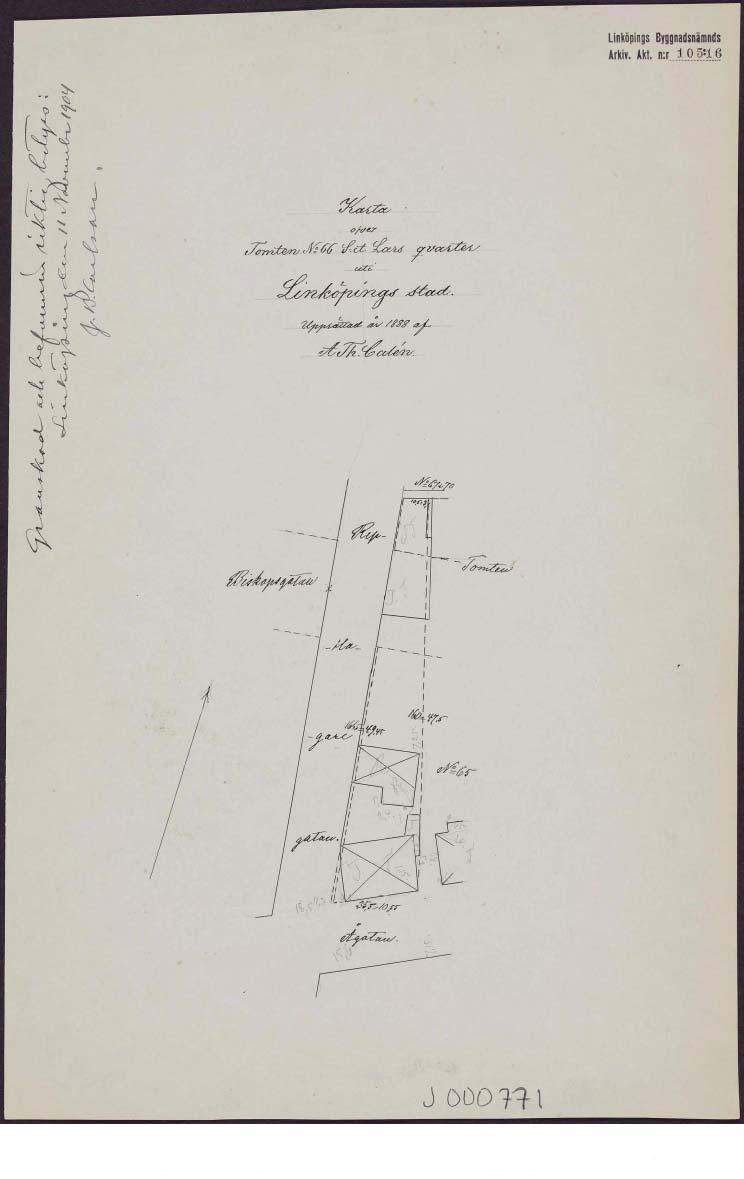 Linköpings Byggnadsnämnds
Arkiv. Akt. n:r 105:16
Granskad och befunnen riktig, betygar:
Linköping den 11 November 1904
J. B. Carlson.
Karta
öfver
Tomten No 66 S:t Lars qvarter
uti
Linköpings stad.
Upprättad år 1888 af
A Th. Calén.
No 67 & 70
Rep-
Tomten
Biskopsgatan
-sla-
-gare
No 65
gatan.
Ågatan.
J 000771